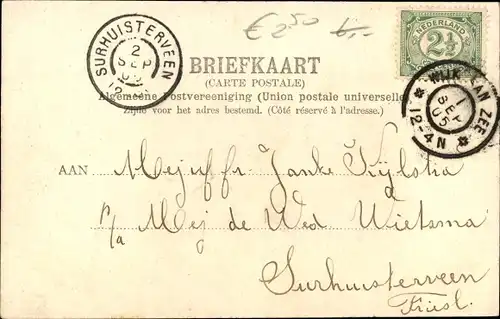 € 2.50
SURHUISTERVEEN
2
SEP
NEDERLAND
2½
BRIEFKAART
(CARTE POSTALE)
Algemeene Postvereeniging (Union postale universelle)
Zijde voor het adres bestemd. (Côté réservé à l'adresse.)
WIJK AAN ZEE
1
SEP
05
12-4N
AAN Mejuffr Janke Kijlstra
p/a Mej de Wed Wietsma
Surhuisterveen
Friesl.